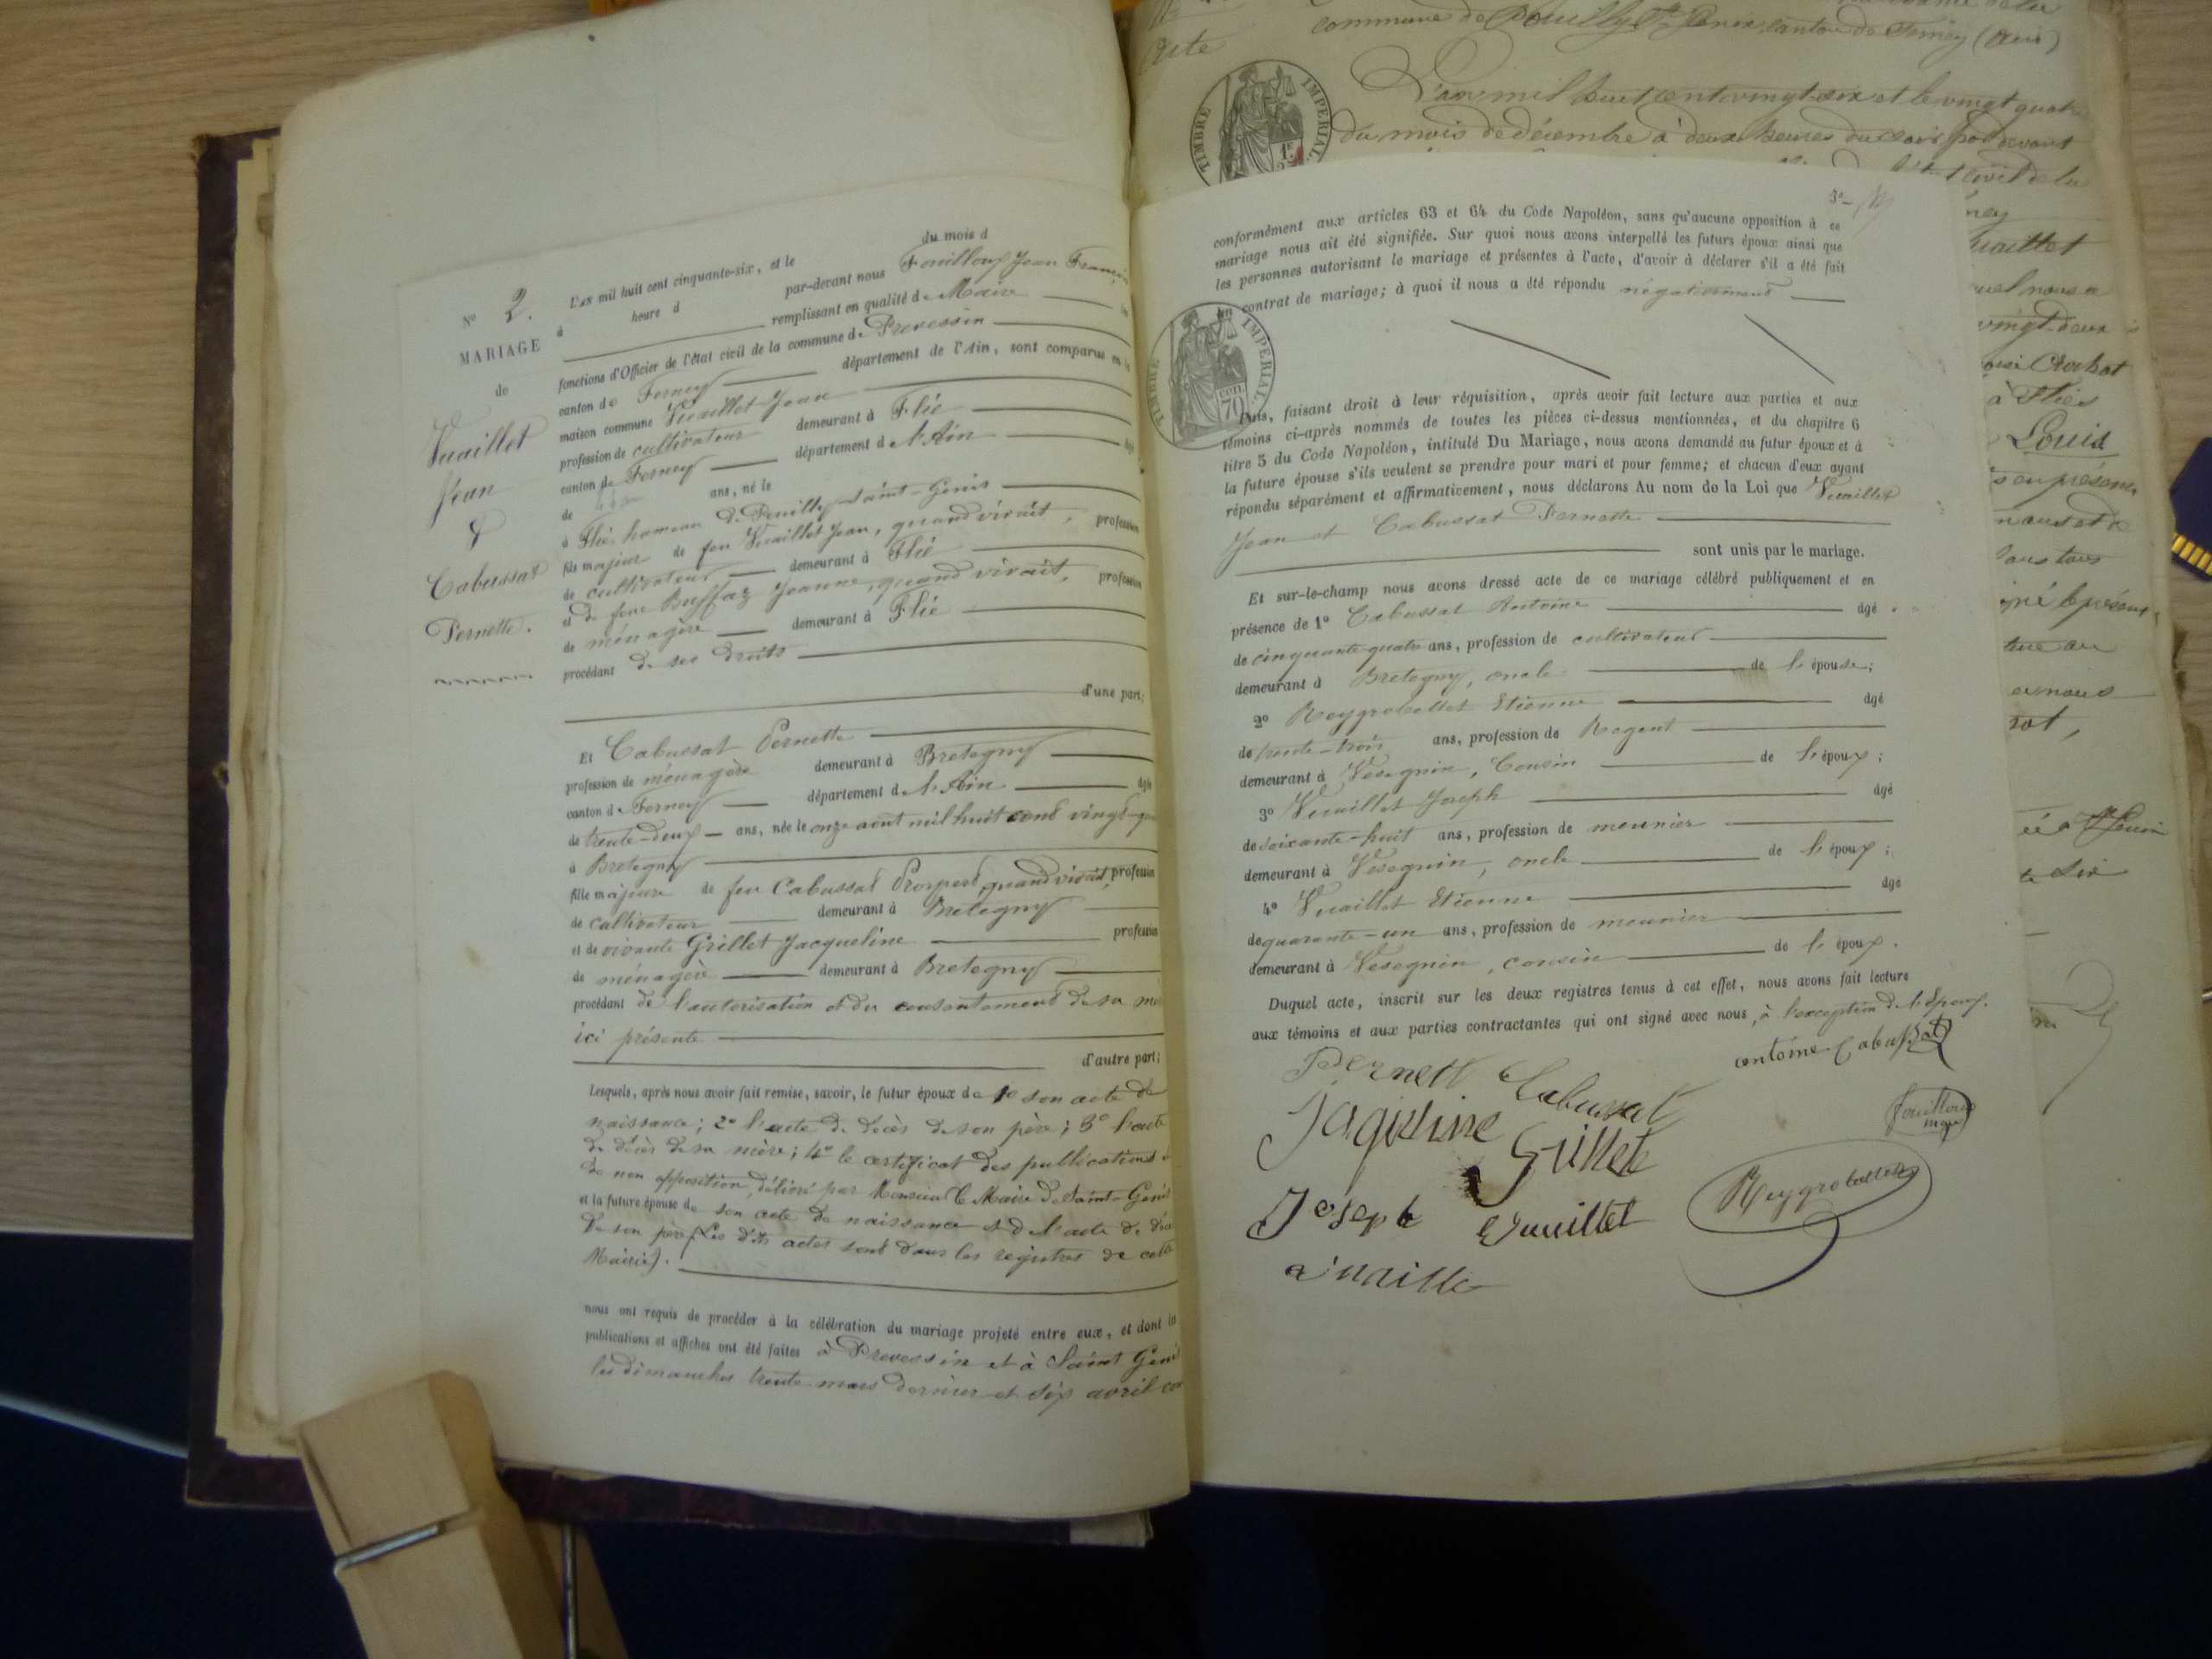 du mois d
L'an mil huit cent cinquante-six, et le
à heure d par-devant nous Fouilloux Jean François
remplissant en qualité de Maire
fonctions d'Officier de l'état civil de la commune de Prevessin
canton de Ferney département de l'Ain, sont comparus en la
maison commune Vuaillet Jean
profession de cultivateur demeurant à Flié
canton de Ferney département de l'Ain âgé
de ans, né le
à Flié hameau de Pouilly-Saint-Genis
fils majeur de feu Vuaillet Jean, quand vivait, profession
de cultivateur demeurant à Flié
et de feue Buffaz Jeanne, quand vivait, profession
de ménagère demeurant à Flié
procédant de ses droits
d'une part;
N° 2.
MARIAGE
de
Vuaillet
Jean
&
Cabussat
Pernette.
Et Cabussat Pernette
profession de ménagère demeurant à Bretegny
canton de Ferney département de l'Ain âgée
de trente-deux ans, née le onze aout mil huit cent vingt-qua
à Bretegny
fille majeure de feu Cabussat Prosper, quand vivait, profession
de cultivateur demeurant à Bretegny
et de vivante Grillet Jacqueline profession
de ménagère demeurant à Bretegny
procédant de l'autorisation et du consentement de sa mère
ici présente
d'autre part;
Lesquels, après nous avoir fait remise, savoir, le futur époux de 1° son acte de
naissance; 2° l'acte de décès de son père; 3° l'acte
de décès de sa mère; 4° le certificat des publications &
de non opposition, délivré par Monsieur le Maire de Saint-Genis
et la future épouse de son acte de naissance et de l'acte de décès
de son père (Les dits actes sont dans les registres de cette
Mairie).
nous ont requis de procéder à la célébration du mariage projeté entre eux, et dont les
publications et affiches ont été faites à Prevessin et à Saint Genis
les dimanches trente mars dernier et six avril cou
3e
conformément aux articles 63 et 64 du Code Napoléon, sans qu'aucune opposition à ce
mariage nous ait été signifiée. Sur quoi nous avons interpellé les futurs époux ainsi que
les personnes autorisant le mariage et présentes à l'acte, d'avoir à déclarer s'il a été fait
un contrat de mariage; à quoi il nous a été répondu négativement
TIMBRE IMPERIAL
70 cen.
Puis, faisant droit à leur réquisition, après avoir fait lecture aux parties et aux
témoins ci-après nommés de toutes les pièces ci-dessus mentionnées, et du chapitre 6
titre 5 du Code Napoléon, intitulé Du Mariage, nous avons demandé au futur époux et à
la future épouse s'ils veulent se prendre pour mari et pour femme; et chacun d'eux ayant
répondu séparément et affirmativement, nous déclarons Au nom de la Loi que Vuaillet
Jean et Cabussat Pernette
sont unis par le mariage.
Et sur-le-champ nous avons dressé acte de ce mariage célébré publiquement et en
présence de 1° Cabussat Antoine âgé
de cinquante-quatre ans, profession de cultivateur
demeurant à Bretegny, oncle de l'épouse;
2° Reygrobellet Etienne âgé
de trente-trois ans, profession de Regent
demeurant à Vesegnin, Cousin de l'époux;
3° Vuaillet Joseph âgé
de soixante-huit ans, profession de meunier
demeurant à Vesegnin, oncle de l'époux;
4° Vuaillet Etienne âgé
de quarante-un ans, profession de meunier
demeurant à Vesegnin, cousin de l'époux.
Duquel acte, inscrit sur les deux registres tenus à cet effet, nous avons fait lecture
aux témoins et aux parties contractantes qui ont signé avec nous, à l'exception de l'Epoux.
Pernett Cabussat antoine Cabussat
Jaqueline Grillet Fouilloux
Joseph Vuaillet Reygrobellet
commune de Pouilly St Genix, canton de Ferney (Ain)
acte
TIMBRE IMPERIAL
L'an mil huit cent vingt-six et le vingt quatre
du mois de décembre à deux heures du soir par devant
l'état civil de la
Vuaillet
vingt-deux
Crochat
à Fliés
Louis
en présence